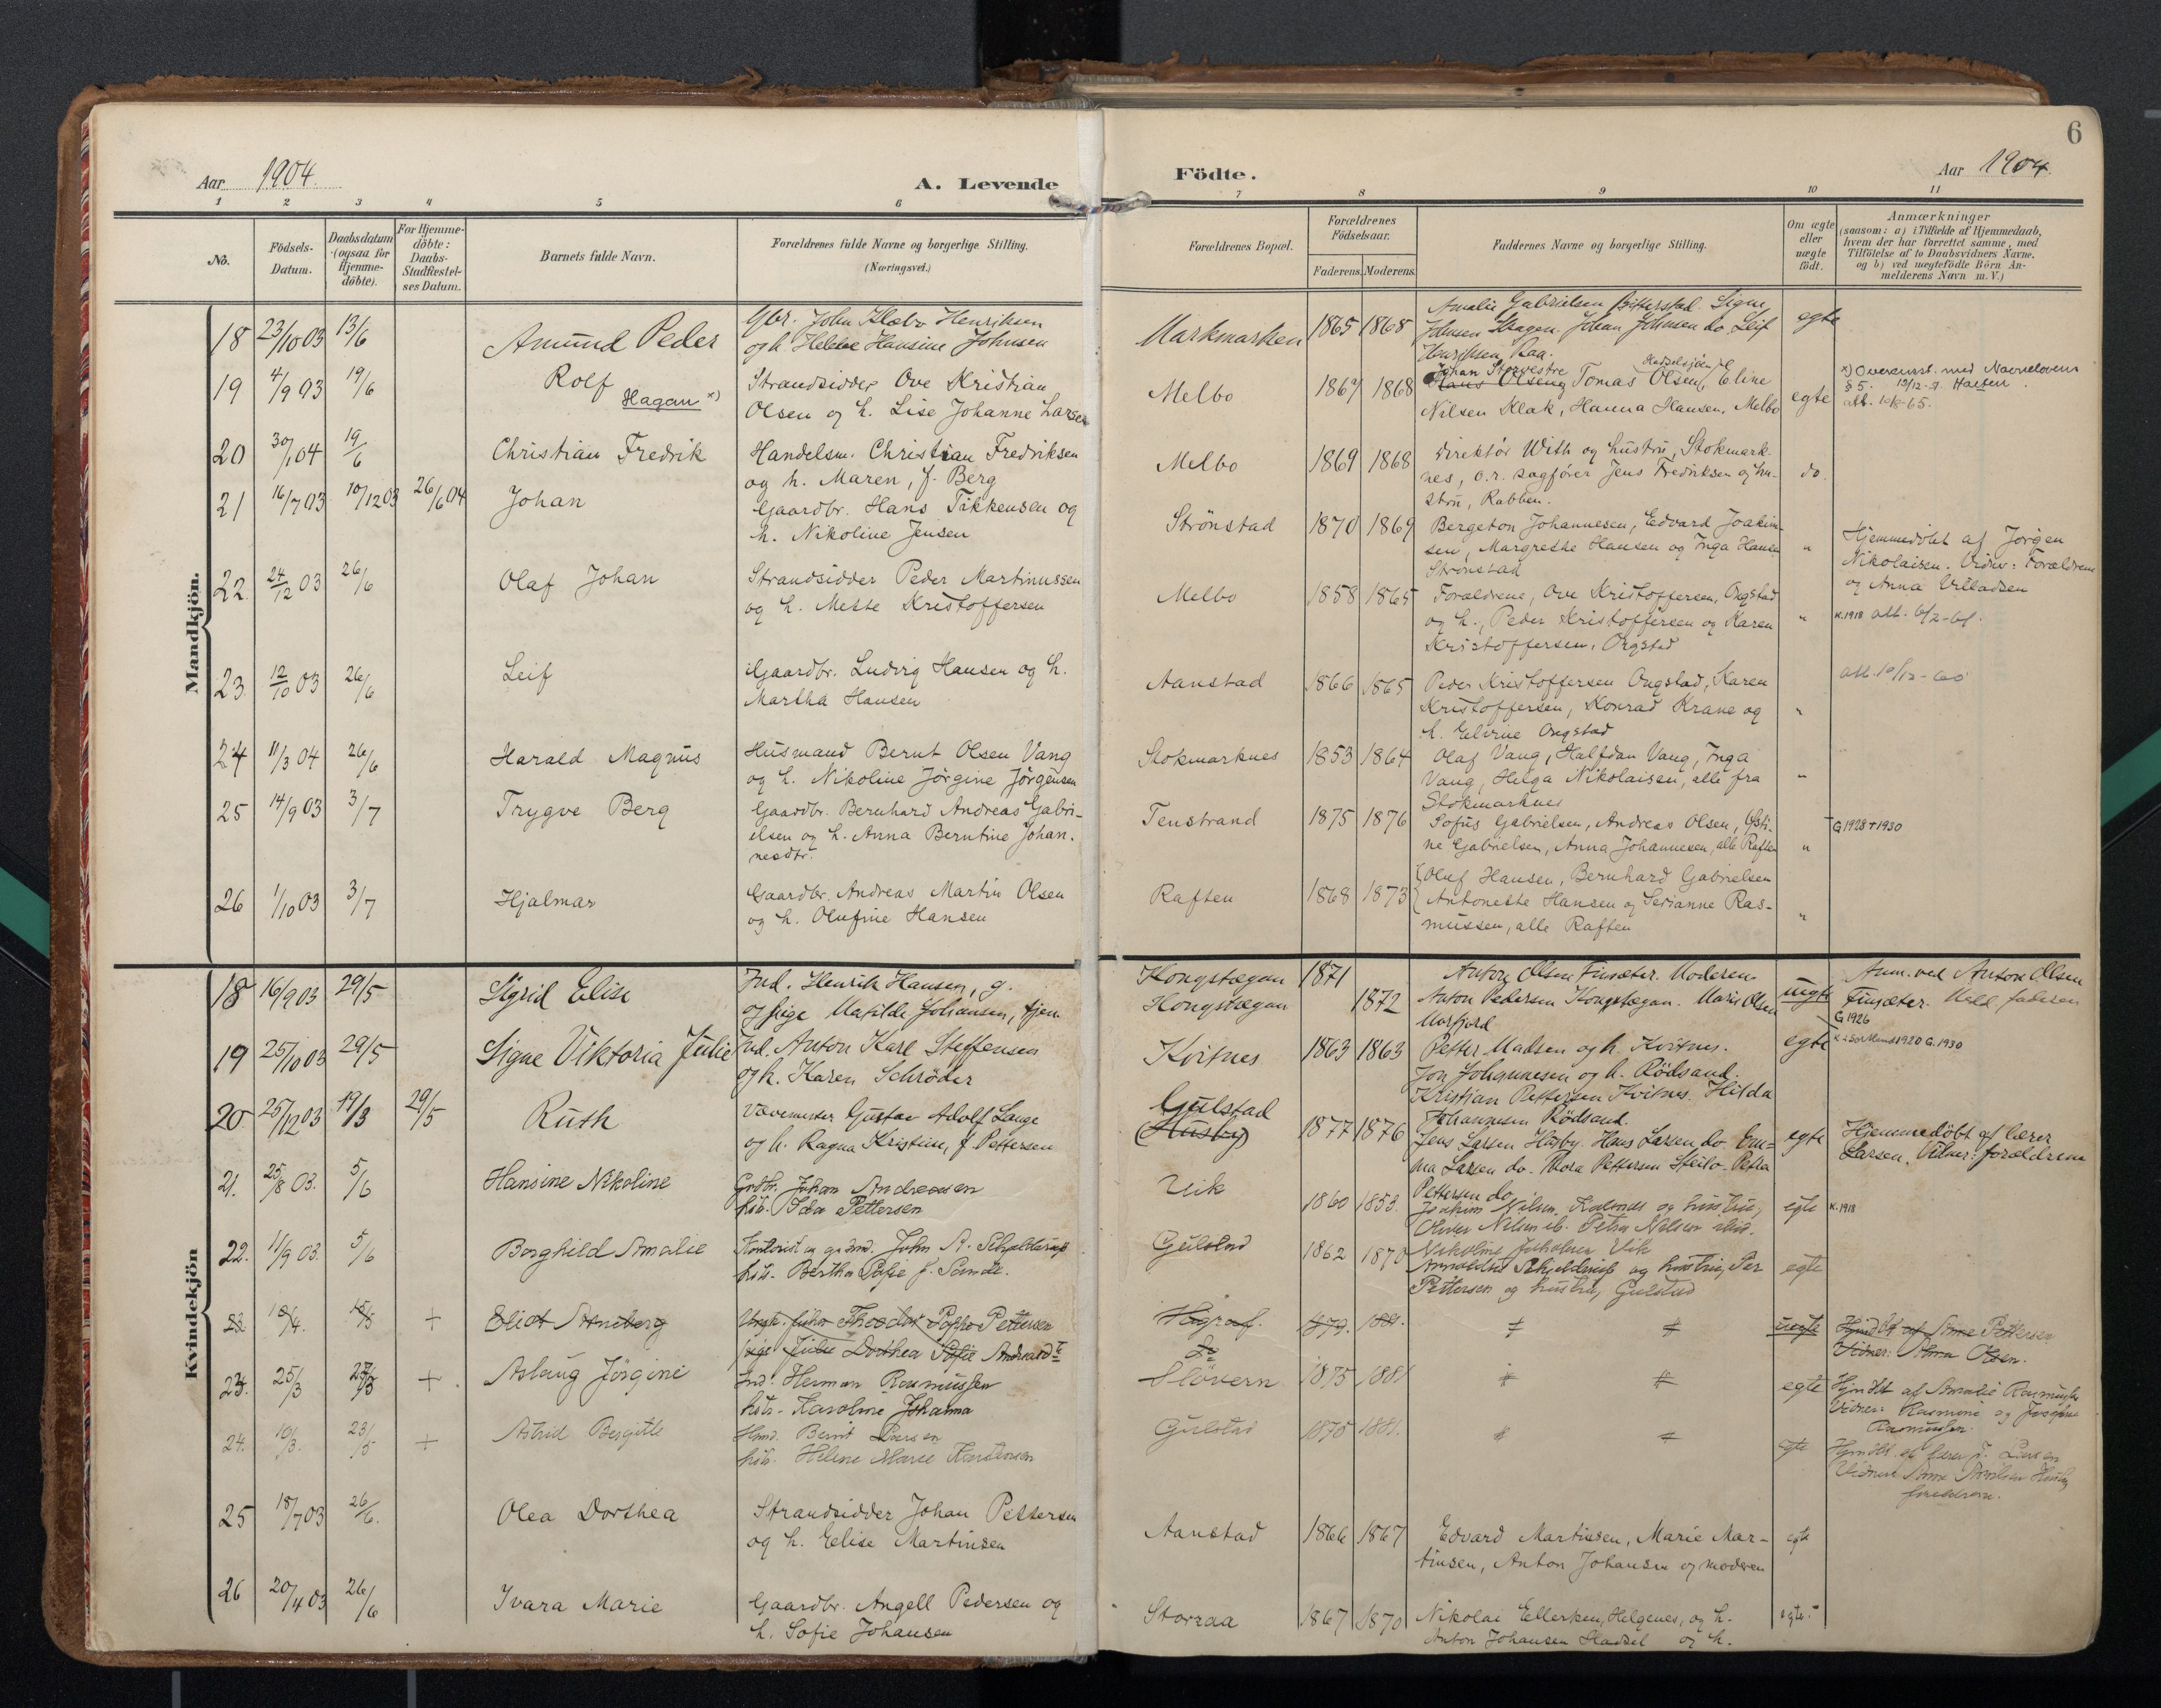 6
Aar 1904.
A. Levende
Födte.
Aar 1904.
1 2 3 4 5 6 7 8 9 10 11
No.
Födsels-
Datum.
Daabsdatum
(ogsaa for
Hjemme-
döbte).
For Hjemme-
döbte:
Daabs-
Stadfæstel-
ses Datum.
Barnets fulde Navn.
Forældrenes fulde Navne og borgerlige Stilling.
(Næringsvei.)
Forældrenes Bopæl.
Forældrenes
Födselsaar.
Faderens. Moderens.
Faddernes Navne og borgerlige Stilling.
Om ægte
eller
uægte
födt.
Anmærkninger
(saasom: a) i Tilfælde af Hjemmedaab,
hvem der har forrettet samme, med
Tilföielse af to Daabsvidners Navne.
og b) ved uægtefödte Börn An-
melderens Navn m. V.)
Mandkjön.
18 23/10 03 13/6 Amund Peder
Gbr. John Klæbo Henriksen
og h. Helene Hansine Johnsen
Markmarken 1865 1868
Amalie Gabrielsen Bitterstad. Signe
Johnsen Skagen. Johan Johnsen do. Leif
Henriksen Raa.
egte
19 4/9 03 19/6 Rolf
Hagan x)
Strandsidder Ove Kristian
Olsen og h. Lise Johanne Larsen
Melbo 1867 1868
Johan Storvestre
Hans Olsen, Tomas Olsen, Eline
Nilsen Klak, Hanna Hansen, Melbo
egte
x) Overenst. med Navnelovens
§ 5.
att. 10/8-65.
20 30/1 04 19/6 Christian Fredrik
Handelsm. Christian Fredriksen
og h. Maren, f. Berg
Melbo 1869 1868
Direktör With og hustru, Stokmark-
nes, o.r. sagförer Jens Fredriksen og hu-
stru, Rabben.
do.
21 16/7 03 10/12 03 26/6 04 Johan
Gaardbr. Hans Tikkensen og
h. Nikoline Jensen
Strönstad 1870 1869
Bergeton Johannesen, Edvard Joakim-
sen, Margrethe Hansen og Inga Hansen
Strönstad
"
Hjemmedöbt af Jörgen
Nikolaisen. Vidner: Forældrene
og Anna Villadsen
22 24/12 03 26/6 Olaf Johan
Strandsidder Peder Martinussen
og h. Mette Kristoffersen
Melbo 1858 1865
Forældrene, Ove Kristoffersen, Ongstad
og h., Peder Kristoffersen og Karen
Kristoffersen, Ongstad
"
K. 1918 att. 6/2-61.
23 12/10 03 26/6 Leif
Gaardbr. Ludvig Hansen og h.
Martha Hansen
Aanstad 1866 1865
Peder Kristoffersen Ongstad, Karen
Kristoffersen, Konrad Krane og
h. Elirine Ongstad
"
att. 10/12-60
24 11/3 04 26/6 Harald Magnus
Husmand Bernt Olsen Vang
og h. Nikoline Jörgine Jörgensen
Stokmarknes 1853 1864
Olaf Vang, Halfdan Vang, Inga
Vang, Helga Nikolaisen, alle fra
Stokmarknes
"
25 14/9 03 3/7 Trygve Berg
Gaardbr. Bernhard Andreas Gabri-
elsen og h. Anna Berntine Johan-
nesdtr.
Tenstrand 1875 1876
Sofus Gabrielsen, Andreas Olsen,
ne Gabrielsen, Anna Johannesen, alle Raften
"
G 1928 + 1930
26 1/10 03 3/7 Hjalmar
Gaardbr. Andreas Martin Olsen
og h. Olufine Hansen
Raften 1868 1873
Oluf Hansen, Bernhard Gabrielsen
Antonette Hansen og Serianne Ras-
mussen, alle Raften
"
Kvindekjön
18 16/9 03 29/5 Sigrid Elise
Ind. Henrik Hansen, g.
og pige Matilde Johansen, tjen.
Kongstægan 1871
Kongstægan 1872
Anton Olsen Finsæter. Moderen.
Anton Pedersen Kongstægan. Marie Olsen
Morfjord
uegte
Anm. ved Anton Olsen
Finsæter. Meld. faderen
G 1926
19 25/10 03 29/5 Signe Viktoria Julie
Ind. Anton Karl Steffensen
og h. Karen Schröder
Kvitnes 1863 1863
Petter Madsen og h. Kvitnes.
Jon Johannesen og h. Rödsand.
Kristian Pettersen Kvitnes. Hilda
Johannesen Rödsand.
egte
1920 G. 1930
20 25/12 03 19/3 29/5 Ruth
Vævemester Gustav Adolf Lange
og h. Ragna Kristine, f. Pettersen
Gulstad
(Husby)
1877 1876
Jens Larsen Husby. Hans Larsen do. Em-
ma Larsen do. Thora Pettersen Steilo. Petra
Pettersen do.
egte
Hjemmedöbt af lærer
Larsen, Vidner: forældrene
21. 25/8 03. 5/6 Hansine Nikoline
Grdbr. Johan Andreasen
hstr. Ida Pettersen
Vik
1860 1853.
Joakim Nilsen, Kalsnes og hustru,
Oluter Nilsen ib. Petra Nilsen ibid.
Nikoline Jakobsen Vik
egte
K. 1918
22. 11/9 03. 5/6 Borghild Amalie
Kontorist og grdmd. John A. Schjelderup
hstr. Bertha Sofie f. Sande.
Gulstad
1862 1870
Arnoldus Schjelderup og hustru, Per
Pettersen og hustru, Gulstad
egte
23. 10/4. 15/5 +
Theodor Pettersen
pige Julie Dorthea Sofie
1879. 1881.
uegte
Hjmdbt af Anne Pettersen
Vidner: Anna Olsen.
23. 25/3 + Aslaug Jörgine
Ind. Herman Rasmussen
hstr. Karoline Johanna
Slövern 1875 1881
egte
Hjmdbt af Amalie Rasmussen
Vidner: Rasmine og Josefine
Rasmussen.
24. 10/3. 23/5 + Astrid Bergitte
Hmd. Bernt Larsen
hstr. Helene Marie Karstensen
Gulstad 1875 1881.
egte
Hjmdbt. af lærer J. Larsen
Vidner: Anne
foreldrene.
25 18/7 03 26/6. Olea Dorthea
Strandsidder Johan Pettersen
og h. Elise Martinsen
Aanstad 1866 1867
Edvard Martinsen, Marie Mar-
tinsen, Anton Johansen og moderen
egte
26 20/4 03 26/6 Ivara Marie
Gaardbr. Angell Pedersen og
h. Sofie Johansen
Storraa 1867 1870
Nikolai Ellerksen, Helgenes, og h.
Anton Johansen Hadsel og h.
egte.